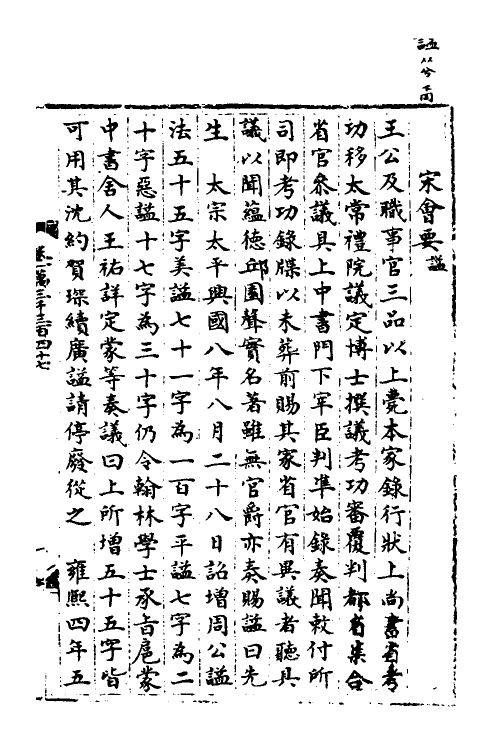 宋會要 謚
王公及職事官三品以上薨本家錄行狀上尚書省考
功移太常禮院議定博士撰議考功審覆判都省集合
省官叅議具上中書門下宰臣判準始錄奏聞敕付所
司即考功錄牒以未葬前賜其家省官有異議者聽具
議以聞蘊德邱園聲實名著雖無官爵亦奏賜謚曰先
生　太宗太平興國八年八月二十八日詔增周公謚
法五十五字美謚七十一字為一百字平謚七字為二
十字惡謚十七字為三十字仍令翰林學士承旨扈蒙
中書舍人王祐詳定蒙等奏議曰上所增五十五字皆
可用其沈約賀琛續廣謚請停廢從之　雍熙四年五
卷一萬三千三百四十七
一